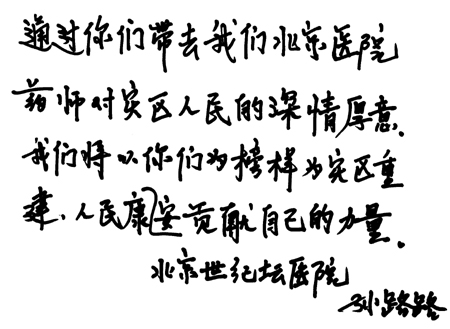 通过你们带去我们北京医院
药师对灾区人民的深情厚意.
我们将以你们为榜样为灾区重
建、人民康安贡献自己的力量.
北京世纪坛医院
孙路路